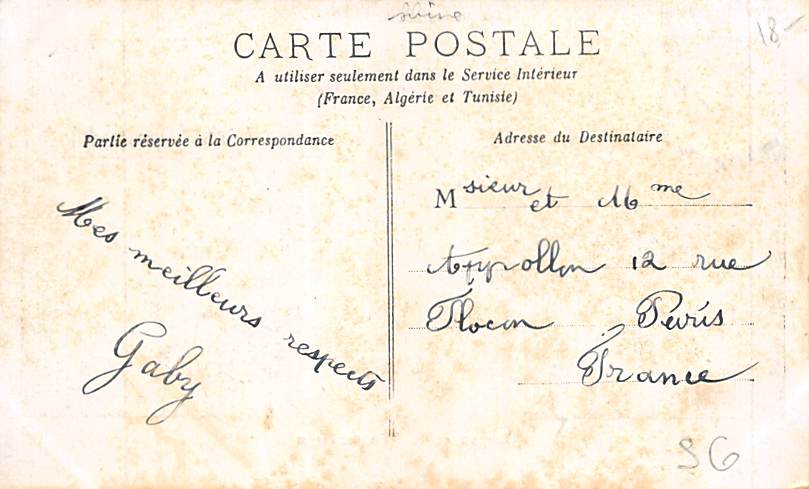 18-
CARTE POSTALE
A utiliser seulement dans le Service Intérieur
(France, Algérie et Tunisie)
Partie réservée à la Correspondance
Mes meilleurs respects
Gaby
Adresse du Destinataire
Msieur et Mme
Appollon 12 rue
Flocon Paris
France
SG